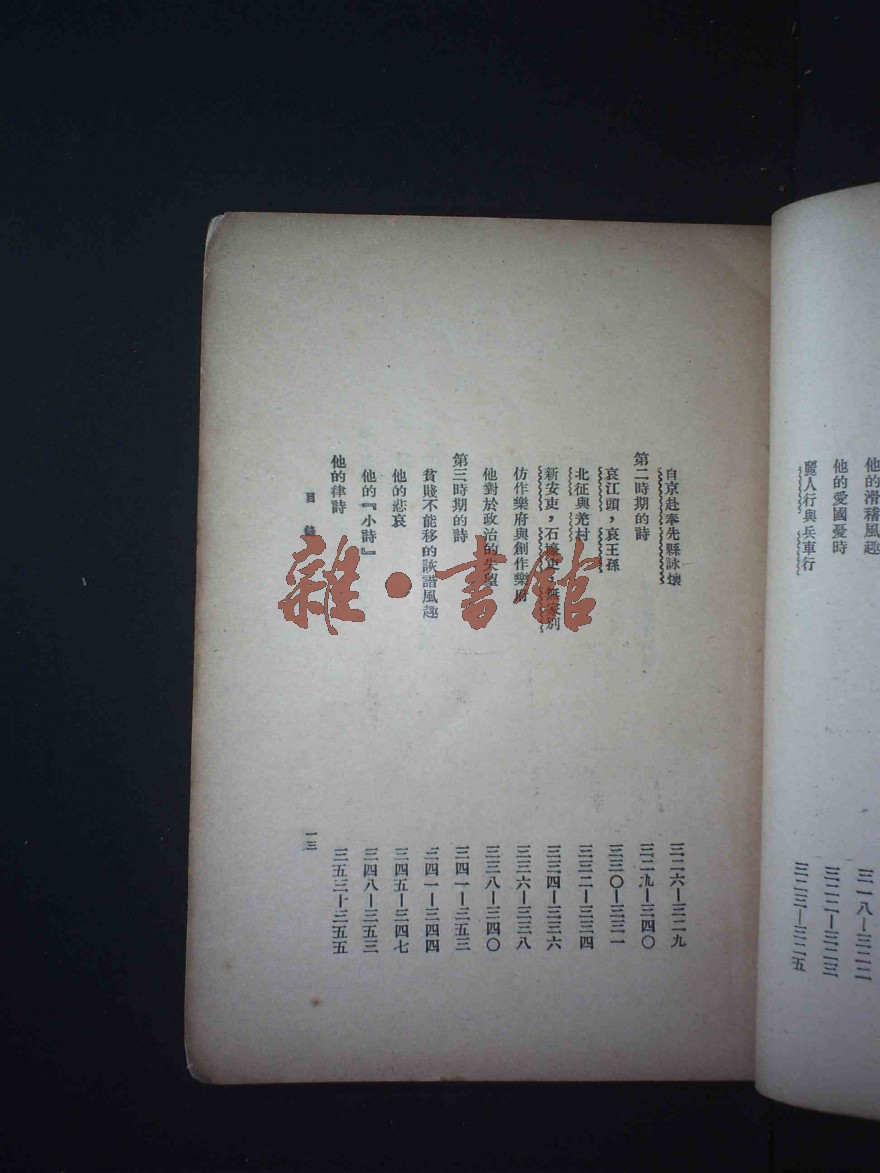 他的滑稽風趣 三一八—三二二
他的愛國憂時 三二二—三二三
麗人行與兵車行 三二三—三二五
自京赴奉先縣詠壞 三二六—三二九
第二時期的詩 三二九—三四〇
哀江頭，哀王孫 三三〇—三三一
北征與羌村 三三二—三三四
新安吏，石壕吏，無家別 三三四—三三六
仿作樂府與創作樂府 三三六—三三八
他對於政治的失望 三三八—三四〇
第三時期的詩 三四一—三五三
貧賤不能移的詼諧風趣 三四一—三四四
他的悲哀 三四五—三四七
他的『小詩』 三四八—三五三
他的律詩 三五三—三五五
目錄 一三
雜·書館